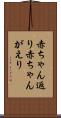 赤ちゃん返
り赤ちゃん
がえり